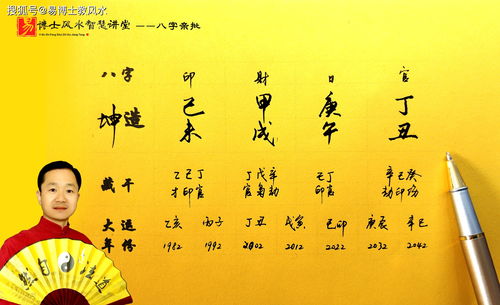 搜狐号@易博士教风水
易 博士风水智慧讲堂 ——八字亲批
Yi Bo Shi Feng Shui Zhi Hui Jiang Tang
八字 印 财 日 官
坤造 己未 甲戌 庚午 丁丑
藏干 乙己丁 丁戊辛 己丁 辛己癸
才印官 官枭劫 印官 劫印伤
大运 乙亥 丙子 丁丑 戊寅 己卯 庚辰 辛巳
年份 1982 1992 2002 2012 2022 2032 2042
然自法道